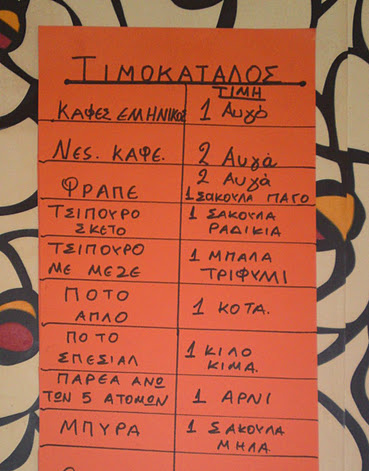 ΤΙΜΟΚΑΤΑΛΟΣ
ΤΙΜΗ
ΚΑΦΕΣ ΕΛΗΝΙΚΟΣ 1 Αυγό
Νες. ΚΑΦΕ. 2 Αυγά
ΦΡΑΠΕ 2 Αυγά
1 ΣΑΚΟΥΛΑ ΠΑΓΟ
ΤΣΙΠΟΥΡΟ 1 ΣΑΚΟΥΛΑ
ΣΚΕΤΟ ΡΑΔΙΚΙΑ
ΤΣΙΠΟΥΡΟ 1 ΜΠΑΛΑ
ΜΕ ΜΕΖΕ ΤΡΙΦΥΜΙ
ΠΟΤΟ 1 ΚΟΤΑ.
ΑΠΛΟ
ΠΟΤΟ 1 ΚΙΛΟ
ΣΠΕΣΙΑΛ ΚΙΜΑ.
ΠΑΡΕΑ ΑΝΩ 1 ΑΡΝΙ
ΤΩΝ 5 ΑΤΟΜΩΝ
ΜΠΥΡΑ 1 ΣΑΚΟΥΛΑ
ΜΗΛΑ